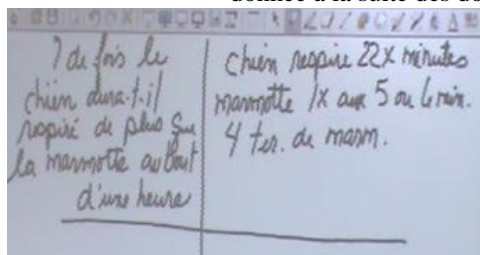 donnée à la suite des do
? de fois le
chien aura-t-il
respiré de plus que
la marmotte au bout
d'une heure
chien respire 22x minutes
marmotte 1x aux 5 ou 6 min.
4 ter. de marm.